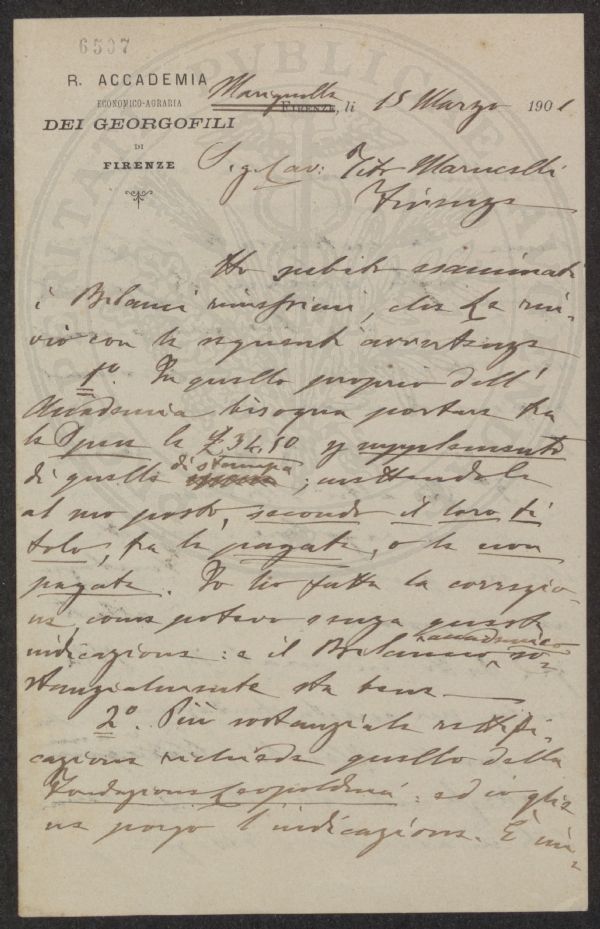 6507
R. ACCADEMIA
ECONOMICO-AGRARIA
DEI GEORGOFILI
DI
FIRENZE
Marignolle
FIRENZE, li 15 Marzo 1901
Sig. Cav: Tito Marucelli
Firenze
Ho subito esaminati
i Bilanci rimessimi, che Le rin-
vio con le seguenti avvertenze
1º. In quello proprio dell'
Accademia bisogna portare fra
le Spese le £. 34.10 supplemento
di quelle di stampa; mettendole
al suo posto, secondo il loro ti
tolo, fra le pagate, o le non
pagate. Io ho fatta la correzio-
ne, come potevo senza questa
indicazione: e il Bilancio accademico so-
stanzialmente sta bene —
2º. Più sostanziale rettifi-
cazione richiede quello della
Fondazione Leopoldina: ed io gliene
porgo l'indicazione. È